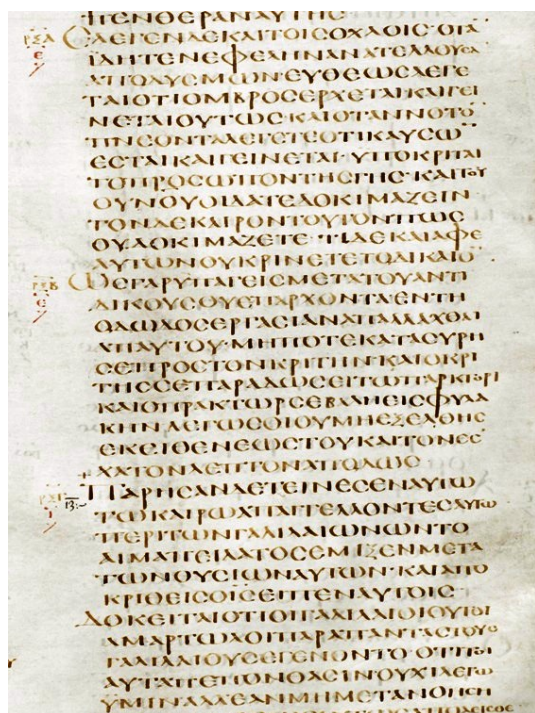 ΠΕΝΘΕΡΑΝΑΥΤΗϹ
ΕΛΕΓΕΝΔΕΚΑΙΤΟΙϹΟΧΛΟΙϹΟΤΑ
ΪΔΗΤΕΝΕΦΕΛΗΝΑΝΑΤΕΛΛΟΥϹΑ
ΑΠΟΔΥϹΜΩΝ·ΕΥΘΕΩϹΛΕΓΕ
ΤΑΙΟΤΙΟΜΒΡΟϹΕΡΧΕΤΑΙΚΑΙΓΕΙ
ΝΕΤΑΙΟΥΤΩϹΚΑΙΟΤΑΝΝΟΤΟ
ΠΝΕΟΝΤΑΛΕΓΕΤΕΟΤΙΚΑΥϹΩ
ΕϹΤΑΙΚΑΙΓΕΙΝΕΤΑΙ·ΥΠΟΚΡΙΤΑΙ
ΤΟΠΡΟϹΩΠΟΝΤΗϹΓΗϹΚΑΙΤΟΥ
ΟΥΝΟΥΟΙΔΑΤΕΔΟΚΙΜΑΖΕΙΝ
ΤΟΝΔΕΚΑΙΡΟΝΤΟΥΤΟΝΠΩϹ
ΟΥΔΟΚΙΜΑΖΕΤΕ·ΤΙΔΕΚΑΙΑΦΕ
ΑΥΤΩΝΟΥΚΡΙΝΕΤΕΤΟΔΙΚΑΙΟ
ΩϹΓΑΡΥΠΑΓΕΙϹΜΕΤΑΤΟΥΑΝΤΙ
ΔΙΚΟΥϹΟΥΕΠΑΡΧΟΝΤΑΕΝΤΗ
ΟΔΩΔΟϹΕΡΓΑϹΙΑΝΑΠΑΛΛΑΧΘΑΙ
ΑΠΑΥΤΟΥ·ΜΗΠΟΤΕΚΑΤΑϹΥΡΗ
ϹΕΠΡΟϹΤΟΝΚΡΙΤΗΝ·ΚΑΙΟΚΡΙ
ΤΗϹϹΕΠΑΡΑΔΩϹΕΙΤΩΠΡΑΚΤΟΡΙ
ΚΑΙΟΠΡΑΚΤΩΡϹΕΒΑΛΗΕΙϹΦΥΛΑ
ΚΗΝΛΕΓΩϹΟΙΟΥΜΗΕΞΕΛΘΗϹ
ΕΚΕΙΘΕΝΕΩϹΤΟΥΚΑΙΤΟΝΕϹ
ΧΑΤΟΝΛΕΠΤΟΝΑΠΟΔΩϹ
ΠΑΡΗϹΑΝΔΕΤΙΝΕϹΕΝΑΥΤΩ
ΤΩΚΑΙΡΩΑΠΑΓΓΕΛΛΟΝΤΕϹΑΥΤΩ
ΠΕΡΙΤΩΝΓΑΛΙΛΑΙΩΝΩΝΤΟ
ΑΙΜΑΠΕΙΛΑΤΟϹΕΜΙΞΕΝΜΕΤΑ
ΤΩΝΘΥϹΙΩΝΑΥΤΩΝ·ΚΑΙΑΠΟ
ΚΡΙΘΕΙϹΟΙϹΕΙΠΕΝΑΥΤΟΙϹ
ΔΟΚΕΙΤΑΙΟΤΙΟΙΓΑΛΙΛΑΙΟΙΟΥΤΟΙ
ΑΜΑΡΤΩΛΟΙΠΑΡΑΠΑΝΤΑϹΤΟΥϹ
ΓΑΛΙΛΑΙΟΥϹΕΓΕΝΟΝΤΟΟΤΙΤΟΙ
ΑΥΤΑΠΕΠΟΝΘΑϹΙΝΟΥΧΙΛΕΓΩ
ΥΜΙΝΑΛΛΕΑΝΜΗΜΕΤΑΝΟΗϹΗ